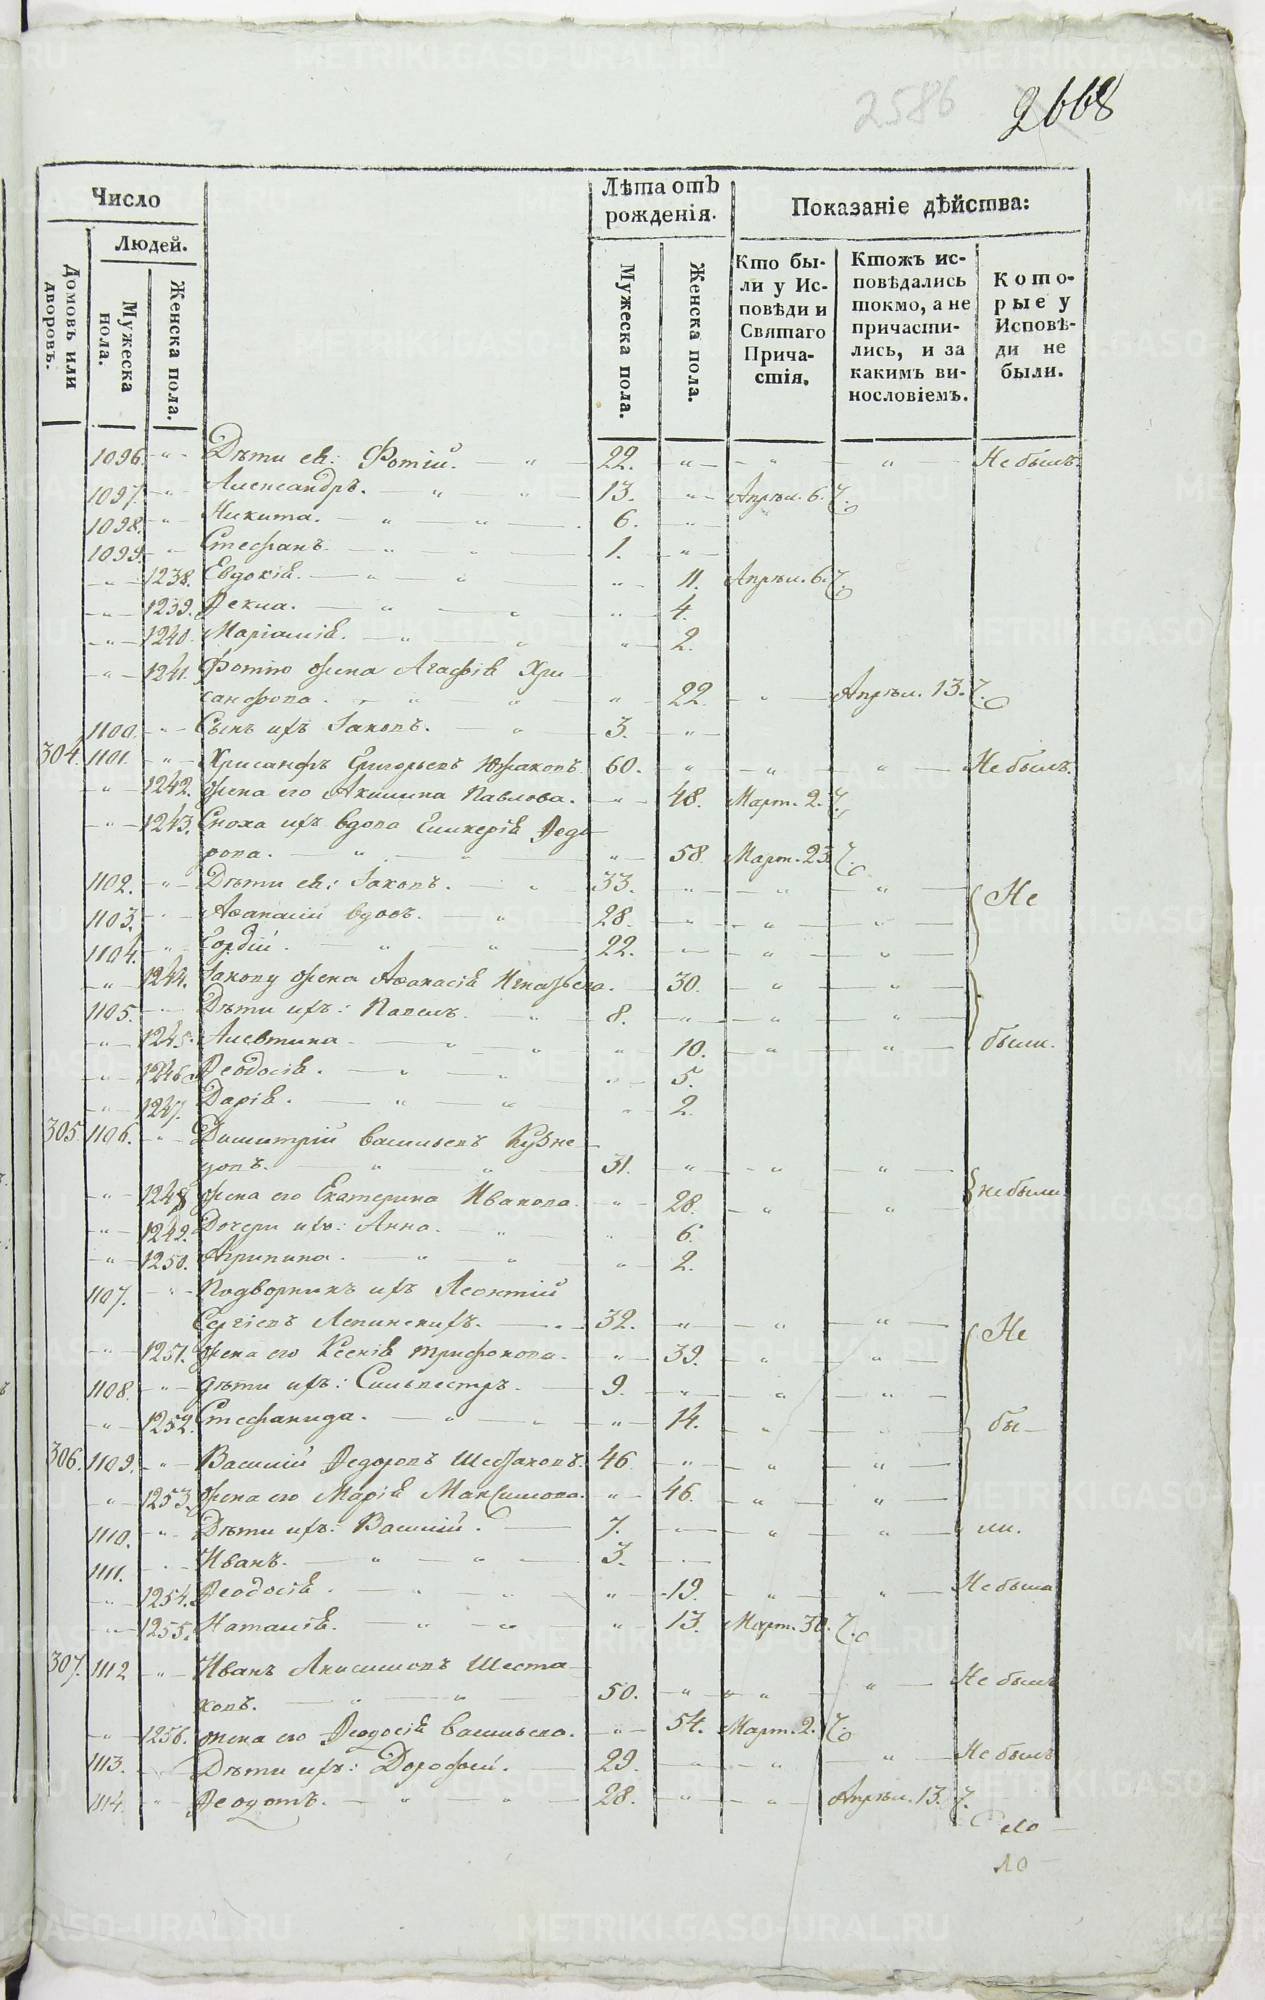 2586
2668
Число
Людей.
Домовъ или дворовъ.
Мужеска пола.
Женска пола.
Лѣта отъ рожденія.
Мужеска пола.
Женска пола.
Показаніе дѣйства:
Кто бы-
ли у Ис-
повѣди и
Святаго
Прича-
стія.
Ктожъ ис-
повѣдались
токмо, а не
причасти-
лись, и за
какимъ ви-
нословіемъ.
Кото-
рые у
Исповѣ-
ди не
были.
1096. Дѣти ев: Фотій. 22. Не былъ.
1097. Александръ. 13. Апрѣл. 6. 7.
1098. Никита. 6.
1099. Стефанъ. 1.
1238. Евдокія. 11. Апрѣл. 6. 7.
1239. Ѳекла. 4.
1240. Маріамія. 2.
1241. Фотію жена Агафія Хри-
санфова. 22. Апрѣл. 13. 7.
1100. Сынъ ихъ Іаковъ. 3.
304. 1101. Хрисанфъ Григорьевъ Южаковъ. 60. Не былъ.
1242. Жена его Акилина Павлова. 48. Март. 2. 7.
1243. Сноха ихъ вдова Гликерія Ѳедо-
рова. 58. Март. 23. 7.
1102. Дѣти ев: Іаковъ. 33. Не
1103. Аѳанасій вдов. 28.
1104. Гордій. 22.
1244. Іакову жена Аѳанасія Игнатьева. 30.
1105. Дѣти ихъ: Павелъ. 8.
1245. Алевтина. 10. были.
1246. Ѳеодосія. 5.
1247. Дарія. 2.
305. 1106. Димитрій Васильевъ Кузне-
цовъ. 31.
1248. Жена его Екатерина Иванова. 28. не были
1249. Дочери ихъ: Анна. 6.
1250. Агрипина. 2.
1107. Подворникъ ихъ Леонтій
Сергіевъ Лепинскихъ. 32. Не
1251. Жена его Ксенія Трифонова. 39.
1108. Дѣти ихъ: Сильвестръ. 9.
1252. Стефанида. 14. бы-
306. 1109. Василій Ѳедоровъ Шестаковъ. 46.
1253. Жена его Марія Максимова. 46.
1110. Дѣти ихъ: Василій. 7. ли.
1111. Иванъ. 3.
1254. Ѳеодосія. 19. Не была
1255. Наталія. 13. Март. 30. 7.
307. 1112 Иванъ Анисимовъ Шеста-
ковъ. 50. Не былъ
1256. Жена его Ѳеодосія Васильева. 54. Март. 2. 7.
1113. Дѣти ихъ: Дорофей. 29. Не былъ
1114. Ѳеодотъ. 28. Апрѣл. 13. 7.
METRIKI.GASO-URAL.RU